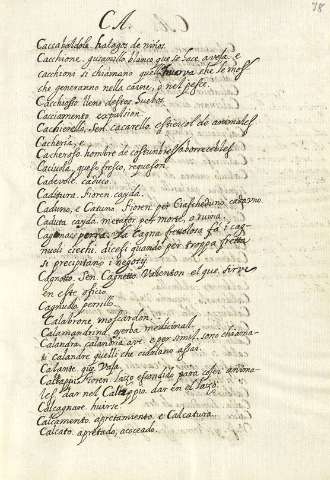 38
CA.
Caccabaldole. halagos de niños.
Cacchione, gusanillo blanco que se hace aveja. e
cacchioni si chiamano quell' huova che le mosche
che generanno nella carne, ò nel pesce.
Cacchioso. lleno desses huevos.
Cacciamento. expulsion.
Cacherello, Sen. cacarello. estiercol de animales
Cacheria, e
Cacheroso. hombre de costumbres aborrecibles
Caciuola, queso fresco, requeson.
Cadevole. caduco.
Caditura. Fioren. cayda.
Caduno, e Catuno Fioren. per Ciascheduno, cadauno.
Caduta cayda. metafor. pet. morte, o ruina.
Cagna perra. La Cagna frettolosa fà i cag-
nuoli ciechi. dicesi quando per troppa fretta
si precipitano i negotij
Cagnotto. Sen. Cagnetto. Valenton el que sirve
en este oficio.
Cagnuolo, perrillo.
Calabrone. moscardon.
Calamandrina, yerba medicinal.
Calandra, calandria ave. e per simil. sono chiama-
ti calandre quelli che cicalano assai.
Calante. que baxa.
Calappio, Fioren. lazo escondido para coger anima-
les. dar nel Calappio. dar en el lazo.
Calcagnare. huirse.
Calcamento. apretamiento. e Calcatura.
Calcato. apretado, acoceado.